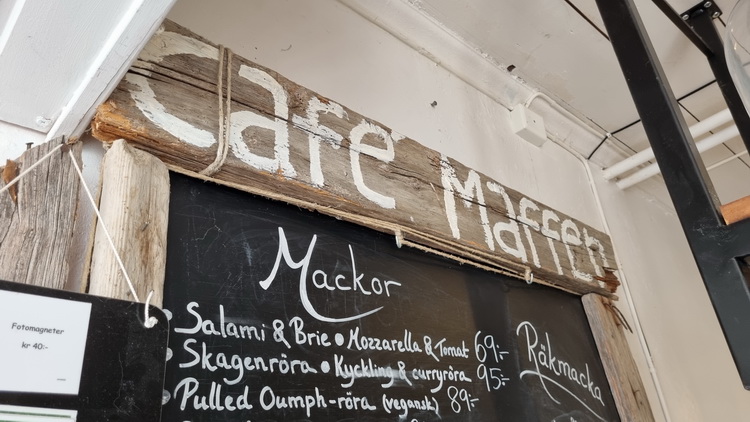 Cafe Maffen
Mackor
• Salami & Brie • Mozzarella & Tomat 69:-
• Skagenröra • Kyckling & curryröra 95:-
• Pulled Oumph-röra (vegansk) 89:-
Räkmacka
Fotomagneter
kr 40:-